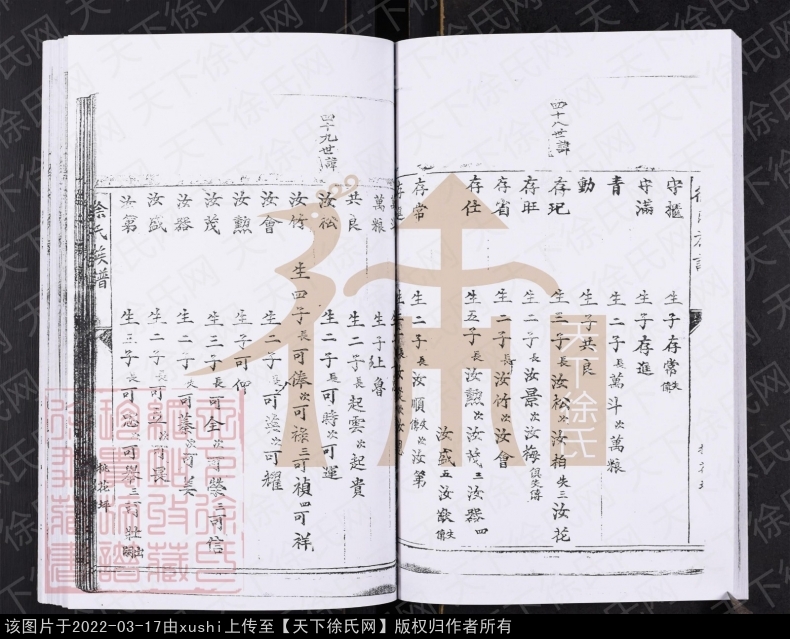 四十八世諱
守櫃 生子存常失傳
守滿 生子存進
青 生二子長萬斗次萬粮
勤 生子共良
存玘 生三子長汝松次汝柏失三汝花
存旺 生二子長汝景次汝梅俱失傳
存省 生二子長汝竹次汝會
存仕 生五子長汝勲次汝茂三汝器四
汝盛五汝猷失傳
存常 生二子長汝順失傳次汝第
四十九世諱
萬粮 生子
共良 生二子長起雲次起貴
汝松 生二子長可時次可運
汝竹 生四子長可俸次可祿三可禎四可祥
汝會 生二子長可 次可耀
汝勲 生子可仰
汝茂 生三子長可全次可榮三可信
汝器 生二子長可 次可美
汝盛 生二子長可 次可畏
汝第 生三子長可 次可舉三可壯出嗣
徐氏族譜
桃花坪
天下徐氏
天下徐氏网
该图片于2022-03-17由xushi上传至【天下徐氏网】版权归作者所有